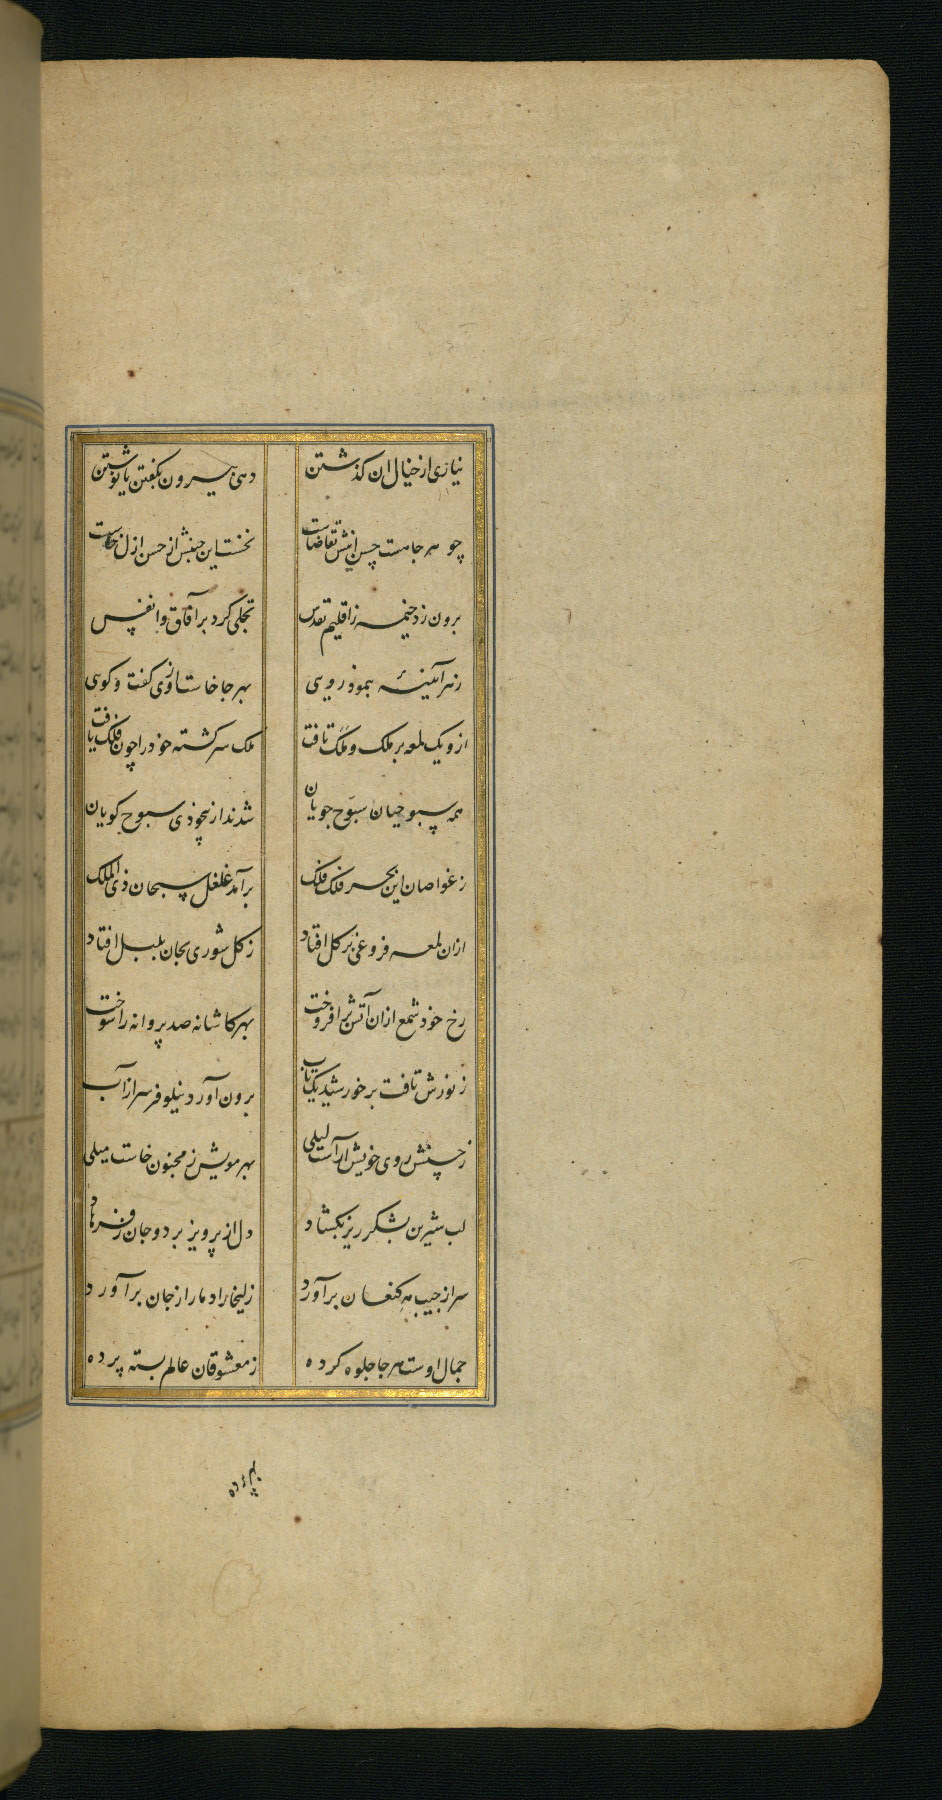 نیاری از خیال ان کذشتن دهی بیرون بکفتن یا نوشتن
چو هر جا هست حسن اینش تقاضاست نخست این جنبش از حسن ازل خاست
برون زد خیمه ز اقلیم تقدس تجلی کرد بر آفاق و انفس
ز هر آیینۀ بنمود رویی بهر جا خاست از وی کفت و کویی
ازو یک لمعه بر ملک و ملک تافت ملک سرکشته خود را چون فلک یافت
همه سبوحیان سبوح جویان شدند از بیخودی سبوح کویان
ز غواصان این بحر فلک فلک برآمد غلغل سبحان ذی الملک
ازان لمعه فروغی بر کل افتاد ز کل شوری بجان بلبل افتاد
رخ خود شمع ازان آتش برافروخت بهر کاشانه صد پروانه را سوخت
ز نورش تافت بر خورشید یک تاب برون آورد نیلوفر سر از آب
ز حسنش روی خویش آراست لیلی بهر مویش ز مجنون خاست میلی
لب شیرین بشکر ریز بکشاد دل از پرویز برد و جان ز فرهاد
سر از جیب مه کنعان برآورد زلیخا را دمار از جان برآورد
جمال اوست هر جا جلوه کرده ز معشوقان عالم بسته پرده
بهر پرده